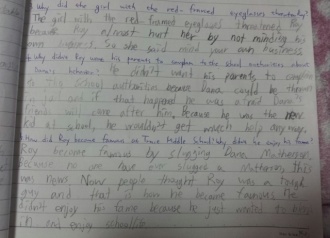 Why did she girl with the red-framed eyeglasses threaten Roy?
The girl with the red-framed eyeglasses threatened Roy
because Roy almost hurt her by not minding his
own business. So she said mind your own business
why didn't Roy want his parents to complain to the school authorities about
Dana's behavior? He didn't want his parents to complain
to the school authorities because Dana could be thrown
and if that happened he was a
would come after him. Because he was the new
kid at school, he wouldn't get much help anyways.
How did Roy become famous at Trace Middle School? Why didn't he enjoy his fame?
Roy became famous by slugging Dana Matherson.
Because no one have ever slugged a Matherson, this
was news. Now people thought Roy was a tough
guy and that is how he became famous. He
didn't enjoy his fame because he just wanted to
and enjoy school life.